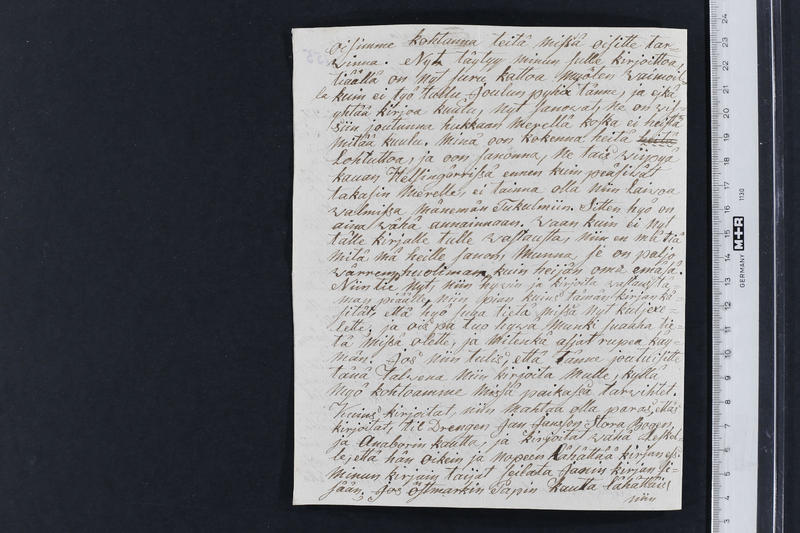 oisimme kohtanna teitä missä oisitte tar=
winna. Nyt täytyy minun sulle kirjoittoa,
tiäällä on nyt suru kattoa myöten waimoil
la kuin ei työ tultu Joulun pyhix tänne, ja eikä
yhtää kirjoa kuulu, nyt sanovat, Ne on wis=
siin joutunna hukkaan merellä koska ei heistä
mitää kuulu. Minä oon kokenna heitä
Lohtuttoa, ja oon sanonna, Ne tais wiipyä
kauan Helsingörissä ennen kuin peäsiwät
takasin Merelle, ei tainna olla niin Laiwoa
walmissa mänemän Tukulmiin. Sitten hyö on
aina wähä annainnaan. Waan kuin ei nyt
tälle kirjalle tulle wastausta, niin en mä tiä
mitä mä heille sanon, Munna se on paljo
wärrempi huolimam kuin heijän oma emäsä.
Niin tie nyt, niin hywin ja kirjoita wastausta
man piäälle, niin pian kuins tämän kirjan kä=
sität, että hyö suap tietä missä nyt kuljexe=
lette, ja ois pa tuo hywä munki suaaha tie=
tä missä olette, ja Mitenkä asjat rupea käy=
män. Jos niin tulis, että tänne jouduisitte
tänä Talvena niin kirjoita Mulle, kyllä
myö kohtoamme missä paikassa tarwihtet.
Kuins kirjoitat, niin mahtaa olla paras, ettäs
kirjoitat, til Drengen Jan Jansson Stora Bogen,
ja Anaborin kautta, ja kirjoitat wähä
le, että hän oikein ja nopeen Lähättää kirjan
Minun kirjain taijat seilata Janin kirjan si=
sään, Jos Östmarkin Papin kautta Lähättäis,
niin